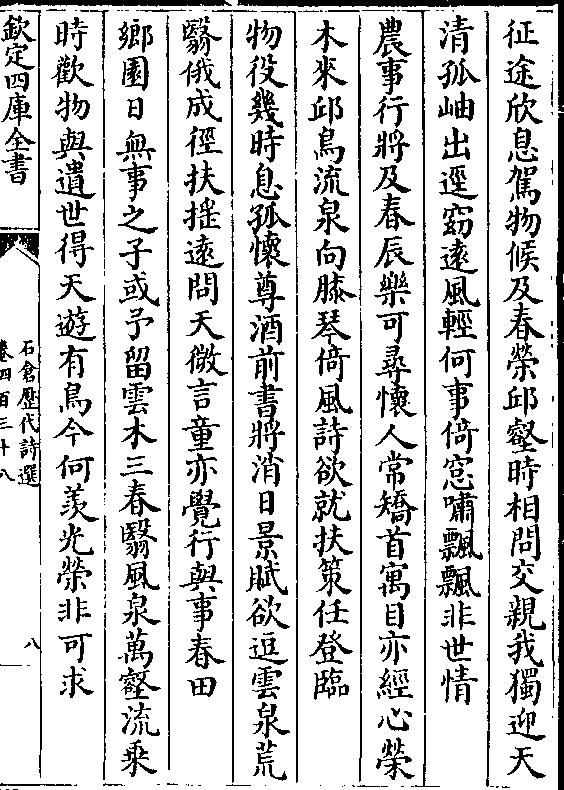 征途欣息駕物候及春榮邱壑時相問交親我獨迎天
清孤岫出逕窈遠風輕何事倚窓嘯飄飄非世情
農事行將及春辰樂可尋懷人常矯首寓目亦經心榮
木來邱鳥流泉向膝琴倚風詩欲就扶策任登臨
物役幾時息孤懷尊酒前書將消日景賦欲逗雲泉荒
翳俄成徑扶搖遠問天微言童亦覺行與事春田
鄉園日無事之子或予留雲木三春翳風泉萬壑流乘
時歡物與遺世得天遊有鳥今何羨光榮非可求
欽定四庫全書
石倉歷代詩選
卷四百三十八
八